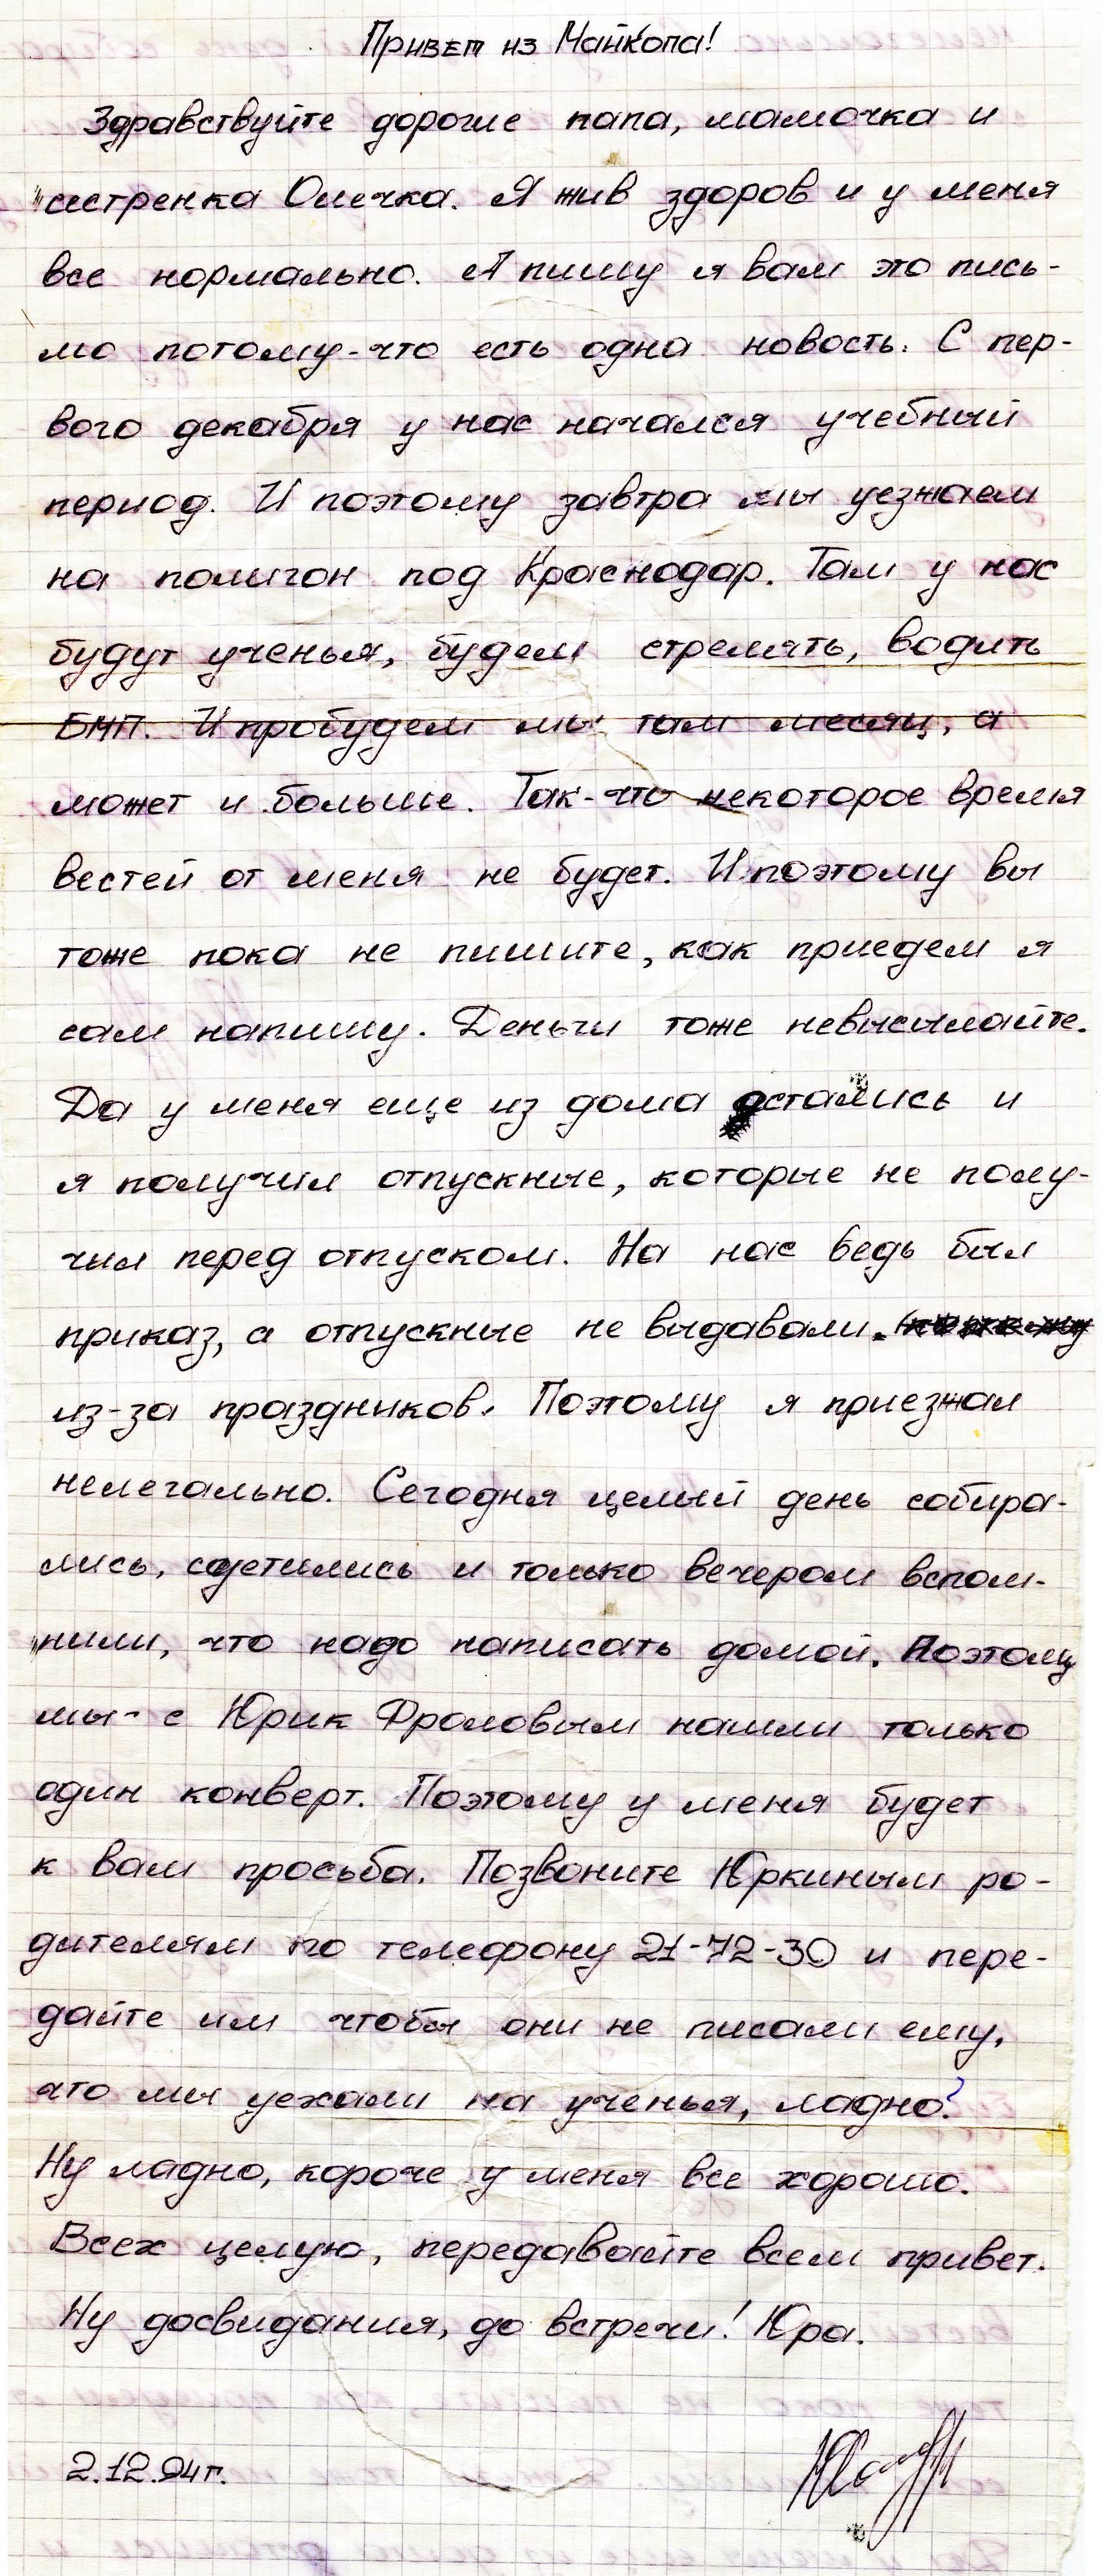 Привет из Майкопа!
Здравствуйте дорогие папа, мамочка и
сестренка Олечка. Я жив здоров и у меня
все нормально. А пишу я вам это пись-
мо потому-что есть одна новость. С пер-
вого декабря у нас начался учебный
период. И поэтому завтра мы уезжаем
на полигон под Краснодар. Там у нас
будут ученья, будем стрелять, водить
БМП. И пробудем мы там месяц, а
может и больше. Так-что некоторое время
вестей от меня не будет. И поэтому вы
тоже пока не пишите, как приедем я
сам напишу. Деньги тоже невысылайте.
Да у меня еще из дома остались и
я получил отпускные, которые не полу-
чил перед отпуском. На нас ведь был
приказ, а отпускные не выдавали.
из-за праздников. Поэтому я приезжал
нелегально. Сегодня целый день собира-
лись, суетились и только вечером вспом-
нили, что надо написать домой. Поэтому
мы с Юрик Фроловым нашли только
один конверт. Поэтому у меня будет
к вам просьба. Позвоните Юркиным ро-
дителям по телефону 21-72-30 и пере-
дайте им чтобы они не писали ему,
что мы уехали на ученья, ладно?
Ну ладно, короче у меня все хорошо.
Всех целую, передавайте всем привет.
Ну досвидания, до встречи! Юра.
2.12.94г.